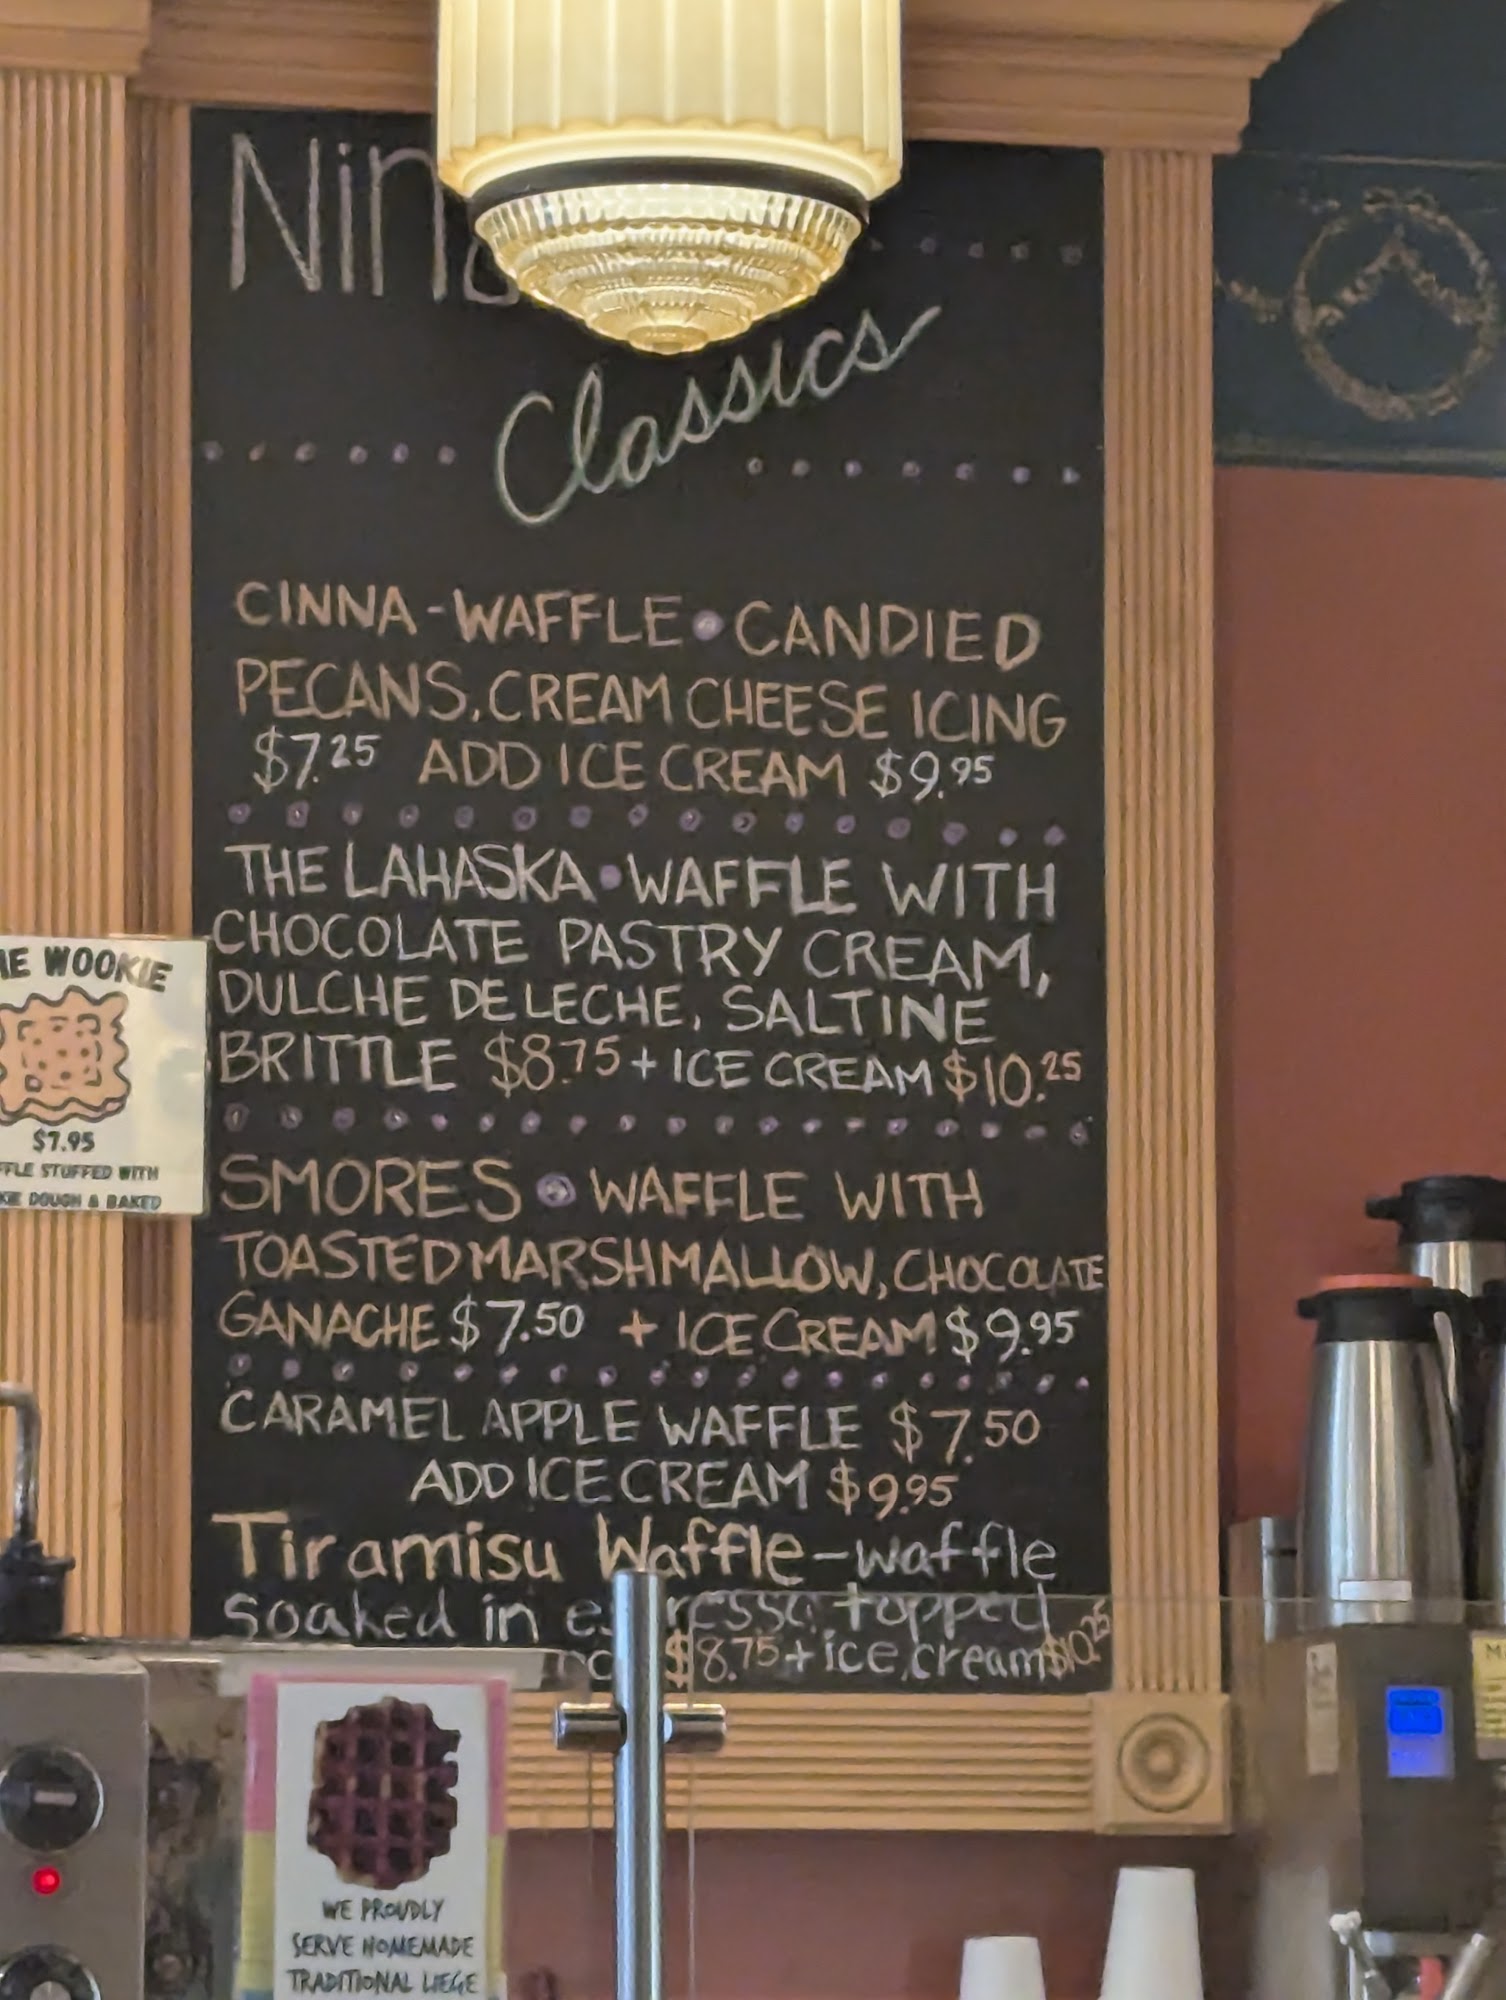 Classics
CINNA-WAFFLE • CANDIED
PECANS, CREAM CHEESE ICING
$7.25 ADD ICE CREAM $9.95
THE LAHASKA • WAFFLE WITH
CHOCOLATE PASTRY CREAM,
DULCHE DE LECHE, SALTINE
BRITTLE $8.75 + ICE CREAM $10.25
SMORES • WAFFLE WITH
TOASTED MARSHMALLOW, CHOCOLATE
GANACHE $7.50 + ICE CREAM $9.95
CARAMEL APPLE WAFFLE $7.50
ADD ICE CREAM $9.95
Tiramisu Waffle - waffle
soaked in espresso, topped
$8.75 + ice cream $10.25
WOOKIE
$7.95
STUFFED WITH
DOUGH & BAKED
WE PROUDLY
SERVE HOMEMADE
TRADITIONAL LIEGE